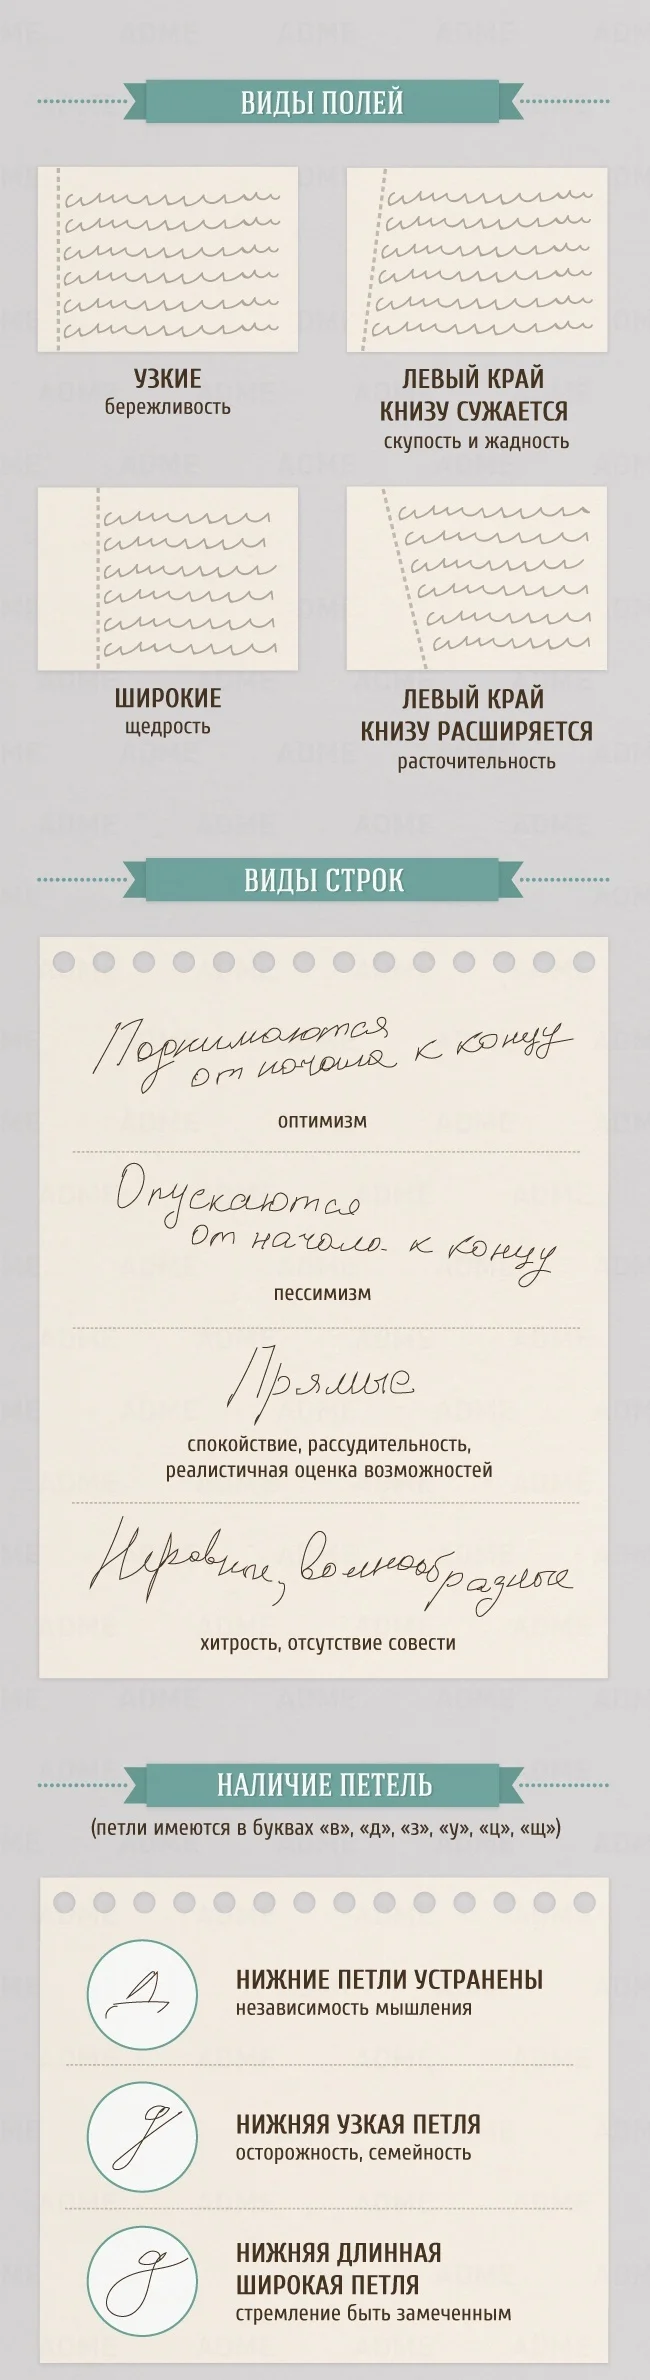 ВИДЫ ПОЛЕЙ
УЗКИЕ
бережливость
ЛЕВЫЙ КРАЙ
КНИЗУ СУЖАЕТСЯ
скупость и жадность
ШИРОКИЕ
щедрость
ЛЕВЫЙ КРАЙ
КНИЗУ РАСШИРЯЕТСЯ
расточительность
ВИДЫ СТРОК
Поднимаются
от начала к концу
оптимизм
Опускаются
от начала к концу
пессимизм
Прямые
спокойствие, рассудительность,
реалистичная оценка возможностей
Неровные, волнообразные
хитрость, отсутствие совести
НАЛИЧИЕ ПЕТЕЛЬ
(петли имеются в буквах «в», «д», «з», «у», «ц», «щ»)
Д
НИЖНИЕ ПЕТЛИ УСТРАНЕНЫ
независимость мышления
д
НИЖНЯЯ УЗКАЯ ПЕТЛЯ
осторожность, семейность
д
НИЖНЯЯ ДЛИННАЯ
ШИРОКАЯ ПЕТЛЯ
стремление быть замеченным